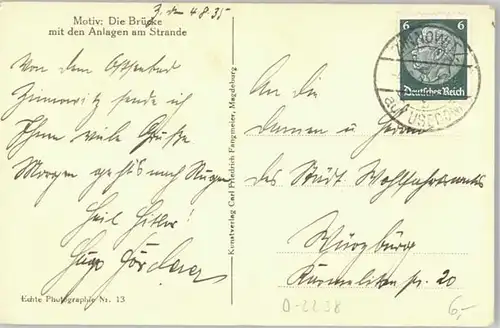 Motiv: Die Brücke
mit den Anlagen am Strande
Z., den 4.8.35
Von dem Ostseebad
Zinnowitz sende ich
Ihnen viele Grüße
Morgen geht's nach Rügen
Heil Hitler!
Hugo
Echte Photographie Nr. 13
Kunstverlag Carl Friedrich Fangmeier, Magdeburg
6 6
Deutsches Reich
ZINNOWITZ
auf USEDOM
An die
Damen u. Herren
des Städt. Wohlfahrtsamtes
Würzburg
Karmelitenstr. 20
D-2238
6,-